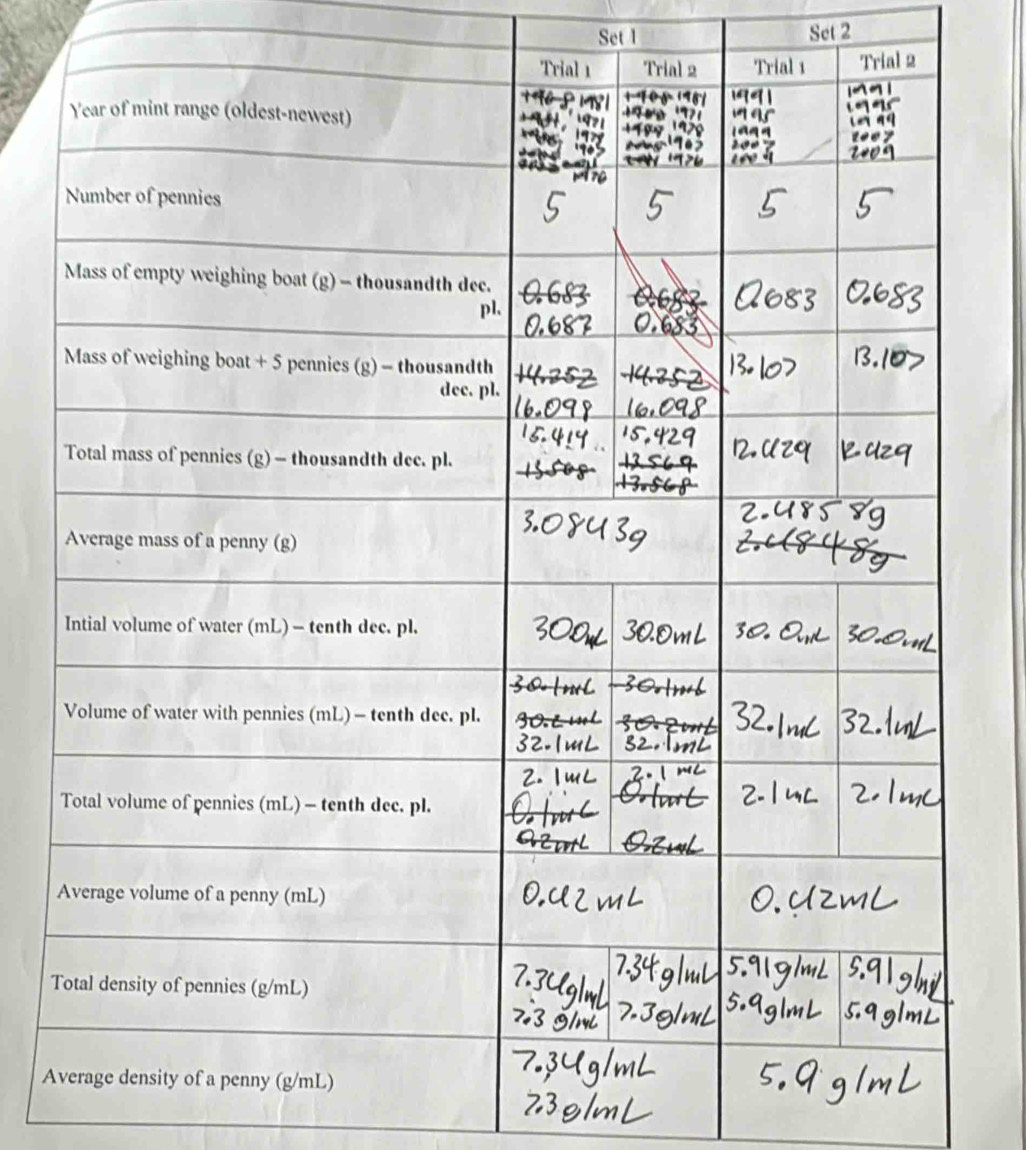 Set 1 Set 2
Trial 1 Trial 2 Trial 1 Trial 2
Year of mint range (oldest-newest)
1981 1981 1991 1991
1971 1971 1995 1995
1978 1978 1999 1999
2007 2007
1976 2009 2009
1976
Number of pennies 5 5 5 5
Mass of empty weighing boat (g) – thousandth dec. pl.
0.683 0.683 0.683 0.683
0.687 0.683
Mass of weighing boat + 5 pennies (g) – thousandth dec. pl.
14.252 14.252 13.107 13.107
16.098 16.098
Total mass of pennies (g) – thousandth dec. pl.
15.414 15.429 12.429 12.429
13.568 13.569
13.568
Average mass of a penny (g) 3.0843g 2.4858g
2.4848g
Intial volume of water (mL) – tenth dec. pl. 300mL 30.0mL 30.0mL 30.0mL
Volume of water with pennies (mL) – tenth dec. pl.
30.1mL 30.1mL 32.1mL 32.1mL
30.2mL 30.2mL
32.1mL 32.1mL
Total volume of pennies (mL) – tenth dec. pl.
2.1mL 2.1mL 2.1mL 2.1mL
0.1mL 0.1mL
0.2mL 0.2mL
Average volume of a penny (mL) 0.42mL 0.42mL
Total density of pennies (g/mL)
7.34g/mL 7.34g/mL 5.91g/mL 5.91g/mL
7.3g/mL 7.3g/mL 5.9g/mL 5.9g/mL
Average density of a penny (g/mL)
7.34g/mL 5.9g/mL
7.3g/mL